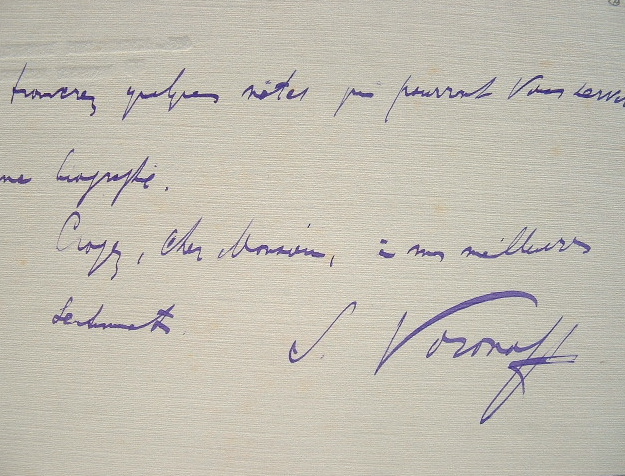 trouverez quelques notes qui pourront Vous servir
une biographie.
Croyez, cher Monsieur, à mes meilleurs
sentiments.
S. Voronoff